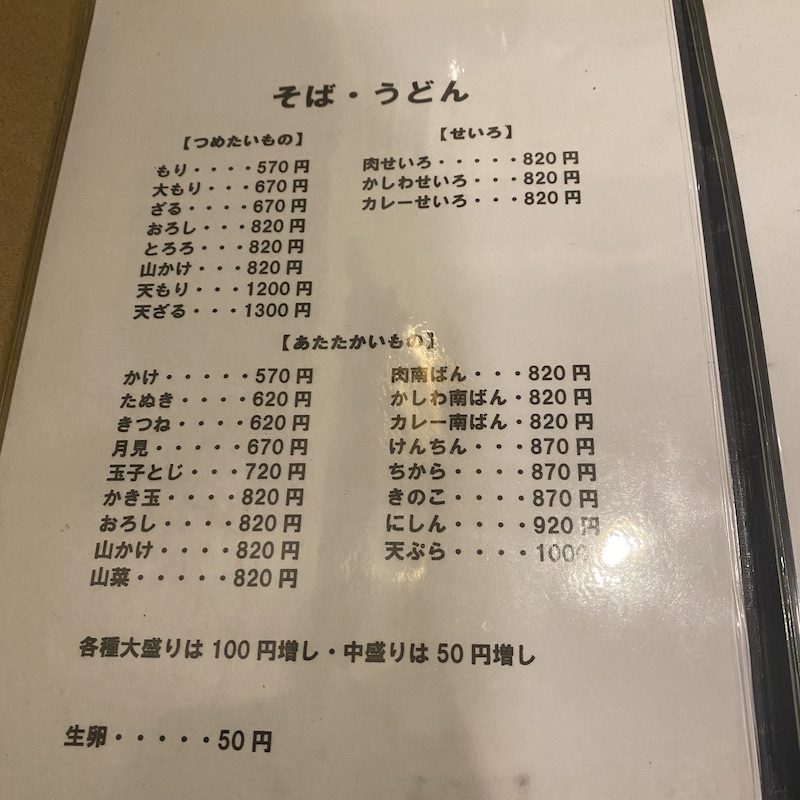 そば・うどん
【つめたいもの】
もり・・・・570円
大もり・・・670円
ざる・・・・670円
おろし・・・820円
とろろ・・・820円
山かけ・・・820円
天もり・・・1200円
天ざる・・・1300円
【せいろ】
肉せいろ・・・・・820円
かしわせいろ・・・820円
カレーせいろ・・・820円
【あたたかいもの】
かけ・・・・・570円
たぬき・・・・620円
きつね・・・・620円
月見・・・・・670円
玉子とじ・・・720円
かき玉・・・・820円
おろし・・・・820円
山かけ・・・・820円
山菜・・・・・820円
肉南ばん・・・820円
かしわ南ばん・820円
カレー南ばん・820円
けんちん・・・870円
ちから・・・・870円
きのこ・・・・870円
にしん・・・・920円
天ぷら・・・・1000
各種大盛りは100円増し・中盛りは50円増し
生卵・・・・・50円